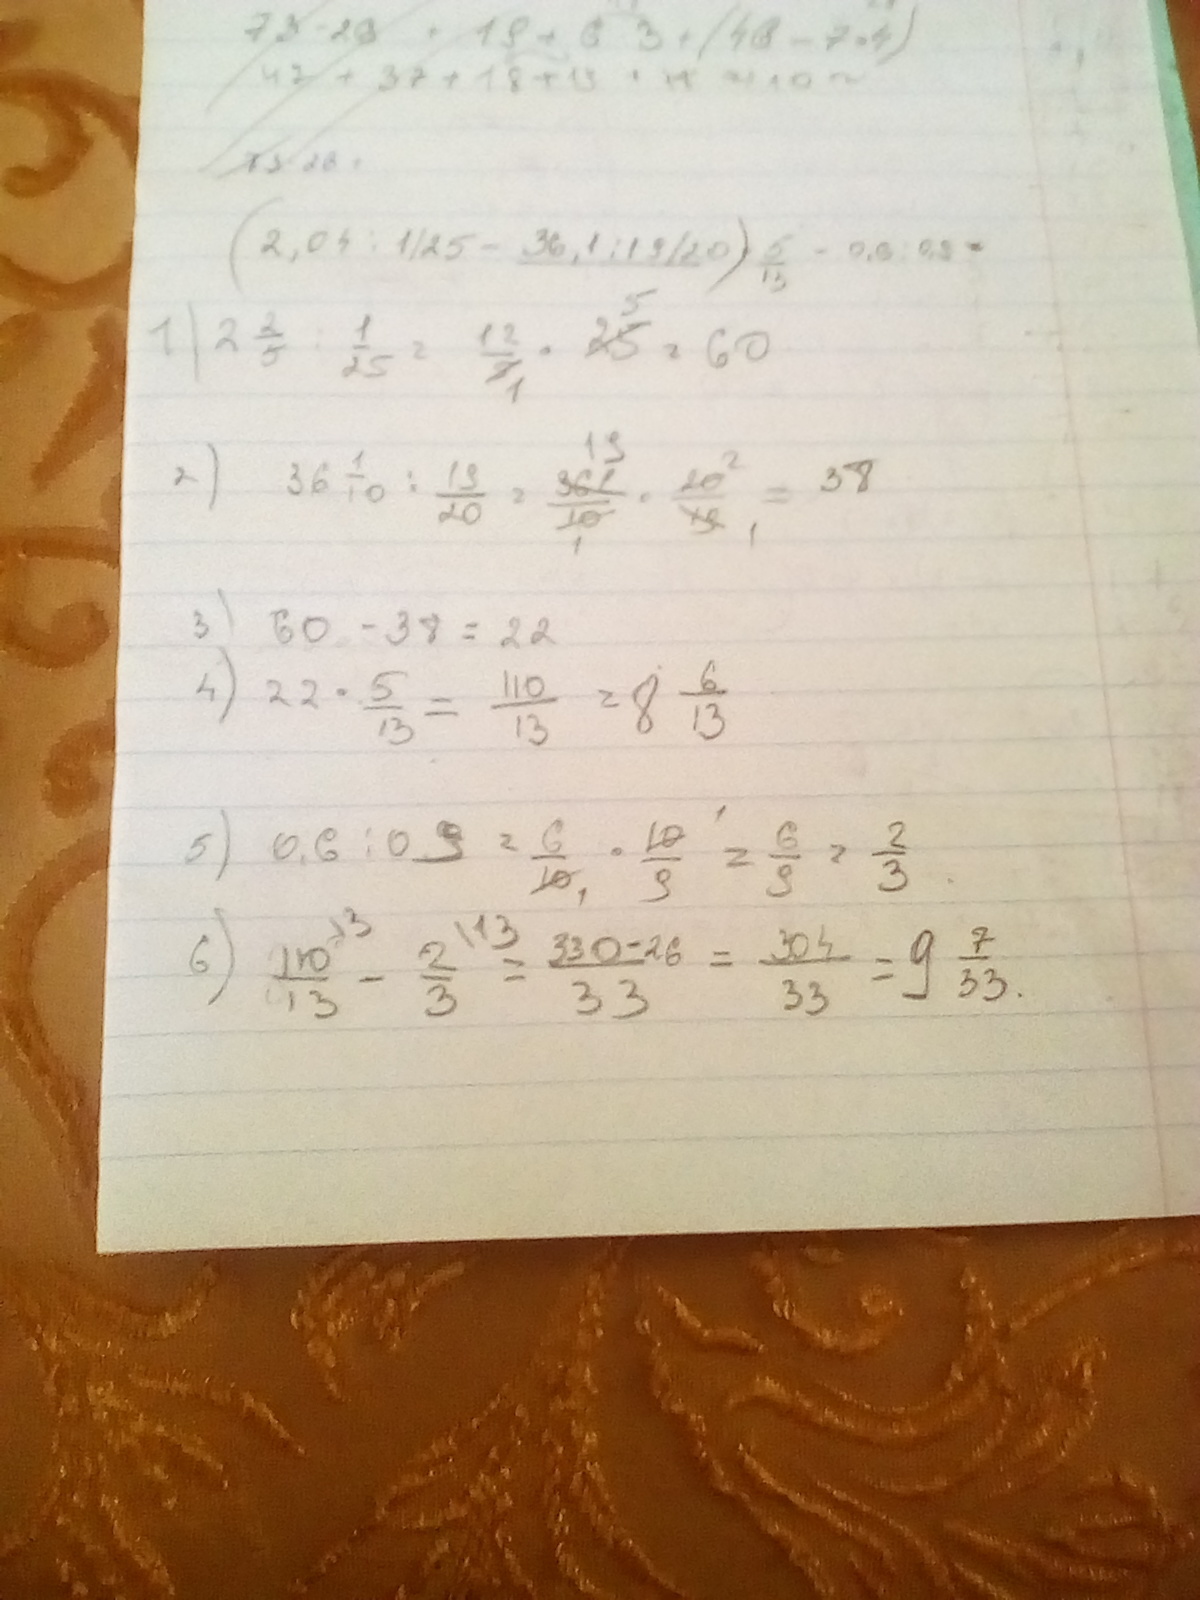 73-28 · 19 + 6 3 + (48 - 7·4)
42 + 37 + 18 + 13
73-28 ·
(2,04 : 1/25 - 36,1 : 19/20) · 5/13 - 0,6 : 0,9 =
1) 2 2/5 : 1/25 = 12/5 · 25 = 60
2) 36 1/10 : 19/20 = 361/10 · 20/19 = 38
3) 60 - 38 = 22
4) 22 · 5/13 = 110/13 = 8 6/13
5) 0,6 : 0,9 = 6/10 · 10/9 = 6/9 = 2/3
6) 110/13 \3 - 2/3 \13 = 330-26/33 = 304/33 = 9 7/33.